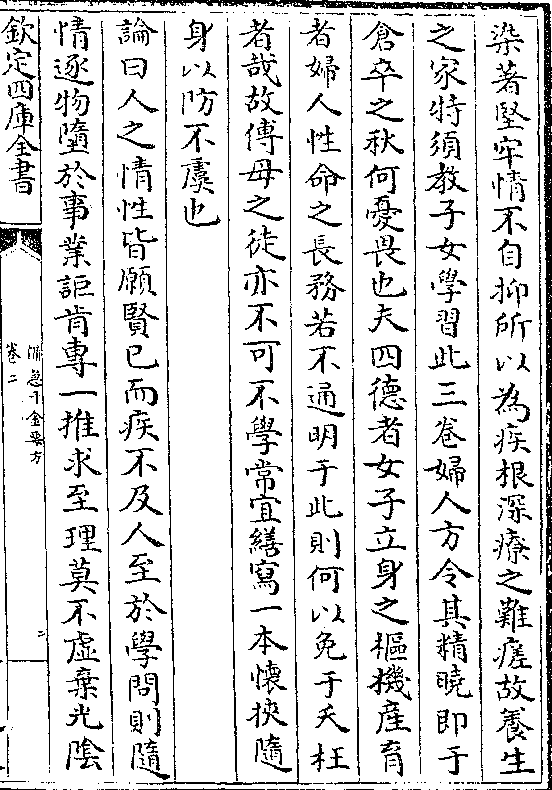 染著堅牢情不自抑所以為疾根深療之難瘥故養生
之家特須教子女學習此三卷婦人方令其精曉即于
倉卒之秋何憂畏也夫四德者女子立身之樞機産育
者婦人性命之長務若不通明于此則何以免于夭枉
者哉故傅母之徒亦不可不學常宜繕寫一本懷挾隨
身以防不虞也
論曰人之情性皆願賢已而疾不及人至於學問則隨
情逐物墮於事業詎肯專一推求至理莫不虛棄光陰
欽定四庫全書
備急千金要方
卷二
二